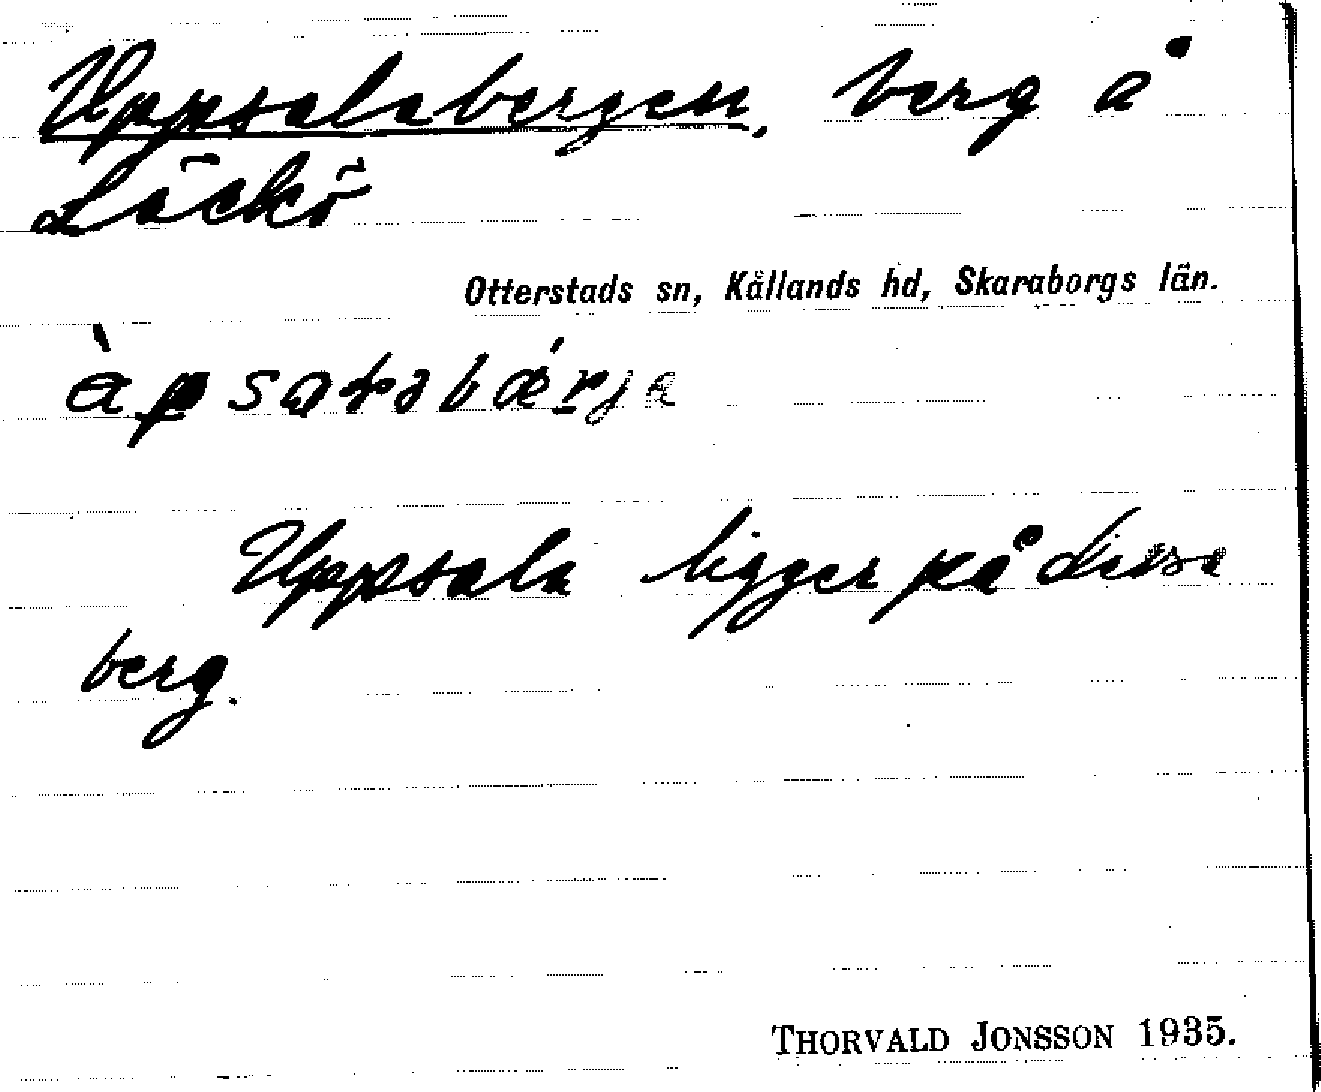 Uppsalabergen, berg å
Läckö
Otterstads sn, Kållands hd, Skaraborgs län.
Uppsala ligger på dessa
berg.
THORVALD JONSSON 1935.